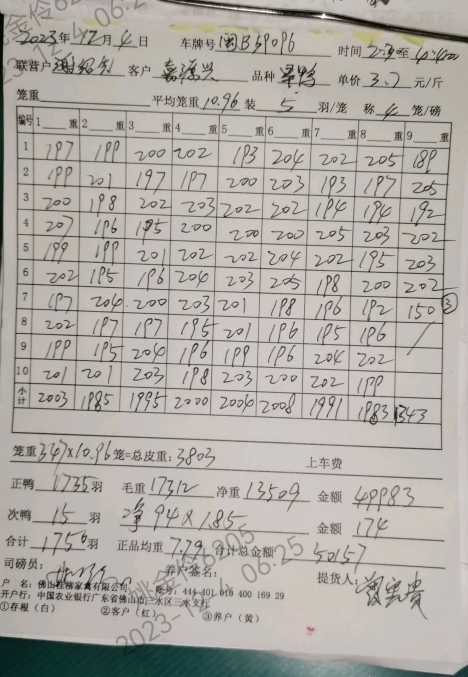 2023年12月4日 车牌号 闽B39096 时间 2:30至4:00
联营户 客户 嘉 兴 品种 单价 3.7 元/斤
笼重 平均笼重 10.96 装 5 羽/笼 称 4 笼/磅
编号 1 重 2 重 3 重 4 重 5 重 6 重 7 重 8 重 9 重
1 197 199 200 202 193 204 202 205 189
2 199 201 197 197 200 203 193 197 205
3 200 198 202 203 202 202 194 194 192
4 207 196 195 200 200 200 205 203 202
5 199 199 201 202 202 204 202 195 203
6 202 195 196 204 203 205 198 200 202
7 197 204 200 203 201 198 196 192 150 ③
8 202 197 197 195 201 196 195 196
9 199 195 204 196 199 196 204 202
10 201 201 203 198 203 200 202 199
小计 2003 1985 1995 2000 2004 2008 1991 1983 1343
笼重 347×10.96 笼=总皮重: 3803 上车费
正鸭 1735 羽 毛重 17312 净重 13509 金额 49983
次鸭 15 羽 净 94×1.85 金额 174
合计 1750 羽 正品均重 7.79 合计总金额 50157
司磅员: 养户签名: 提货人:
户 名: 佛山 家禽有限公司 账号: 444 401 010 400 169 29
开户行: 中国农业银行广东省佛山市三水区三水支行
①存根(白) ②客户(红) ③养户(黄)
2023-12-4 06:25